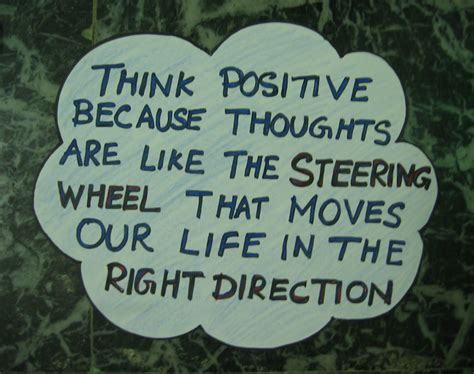 THINK POSITIVE
BECAUSE THOUGHTS
ARE LIKE THE STEERING
WHEEL THAT MOVES
OUR LIFE IN THE
RIGHT DIRECTION